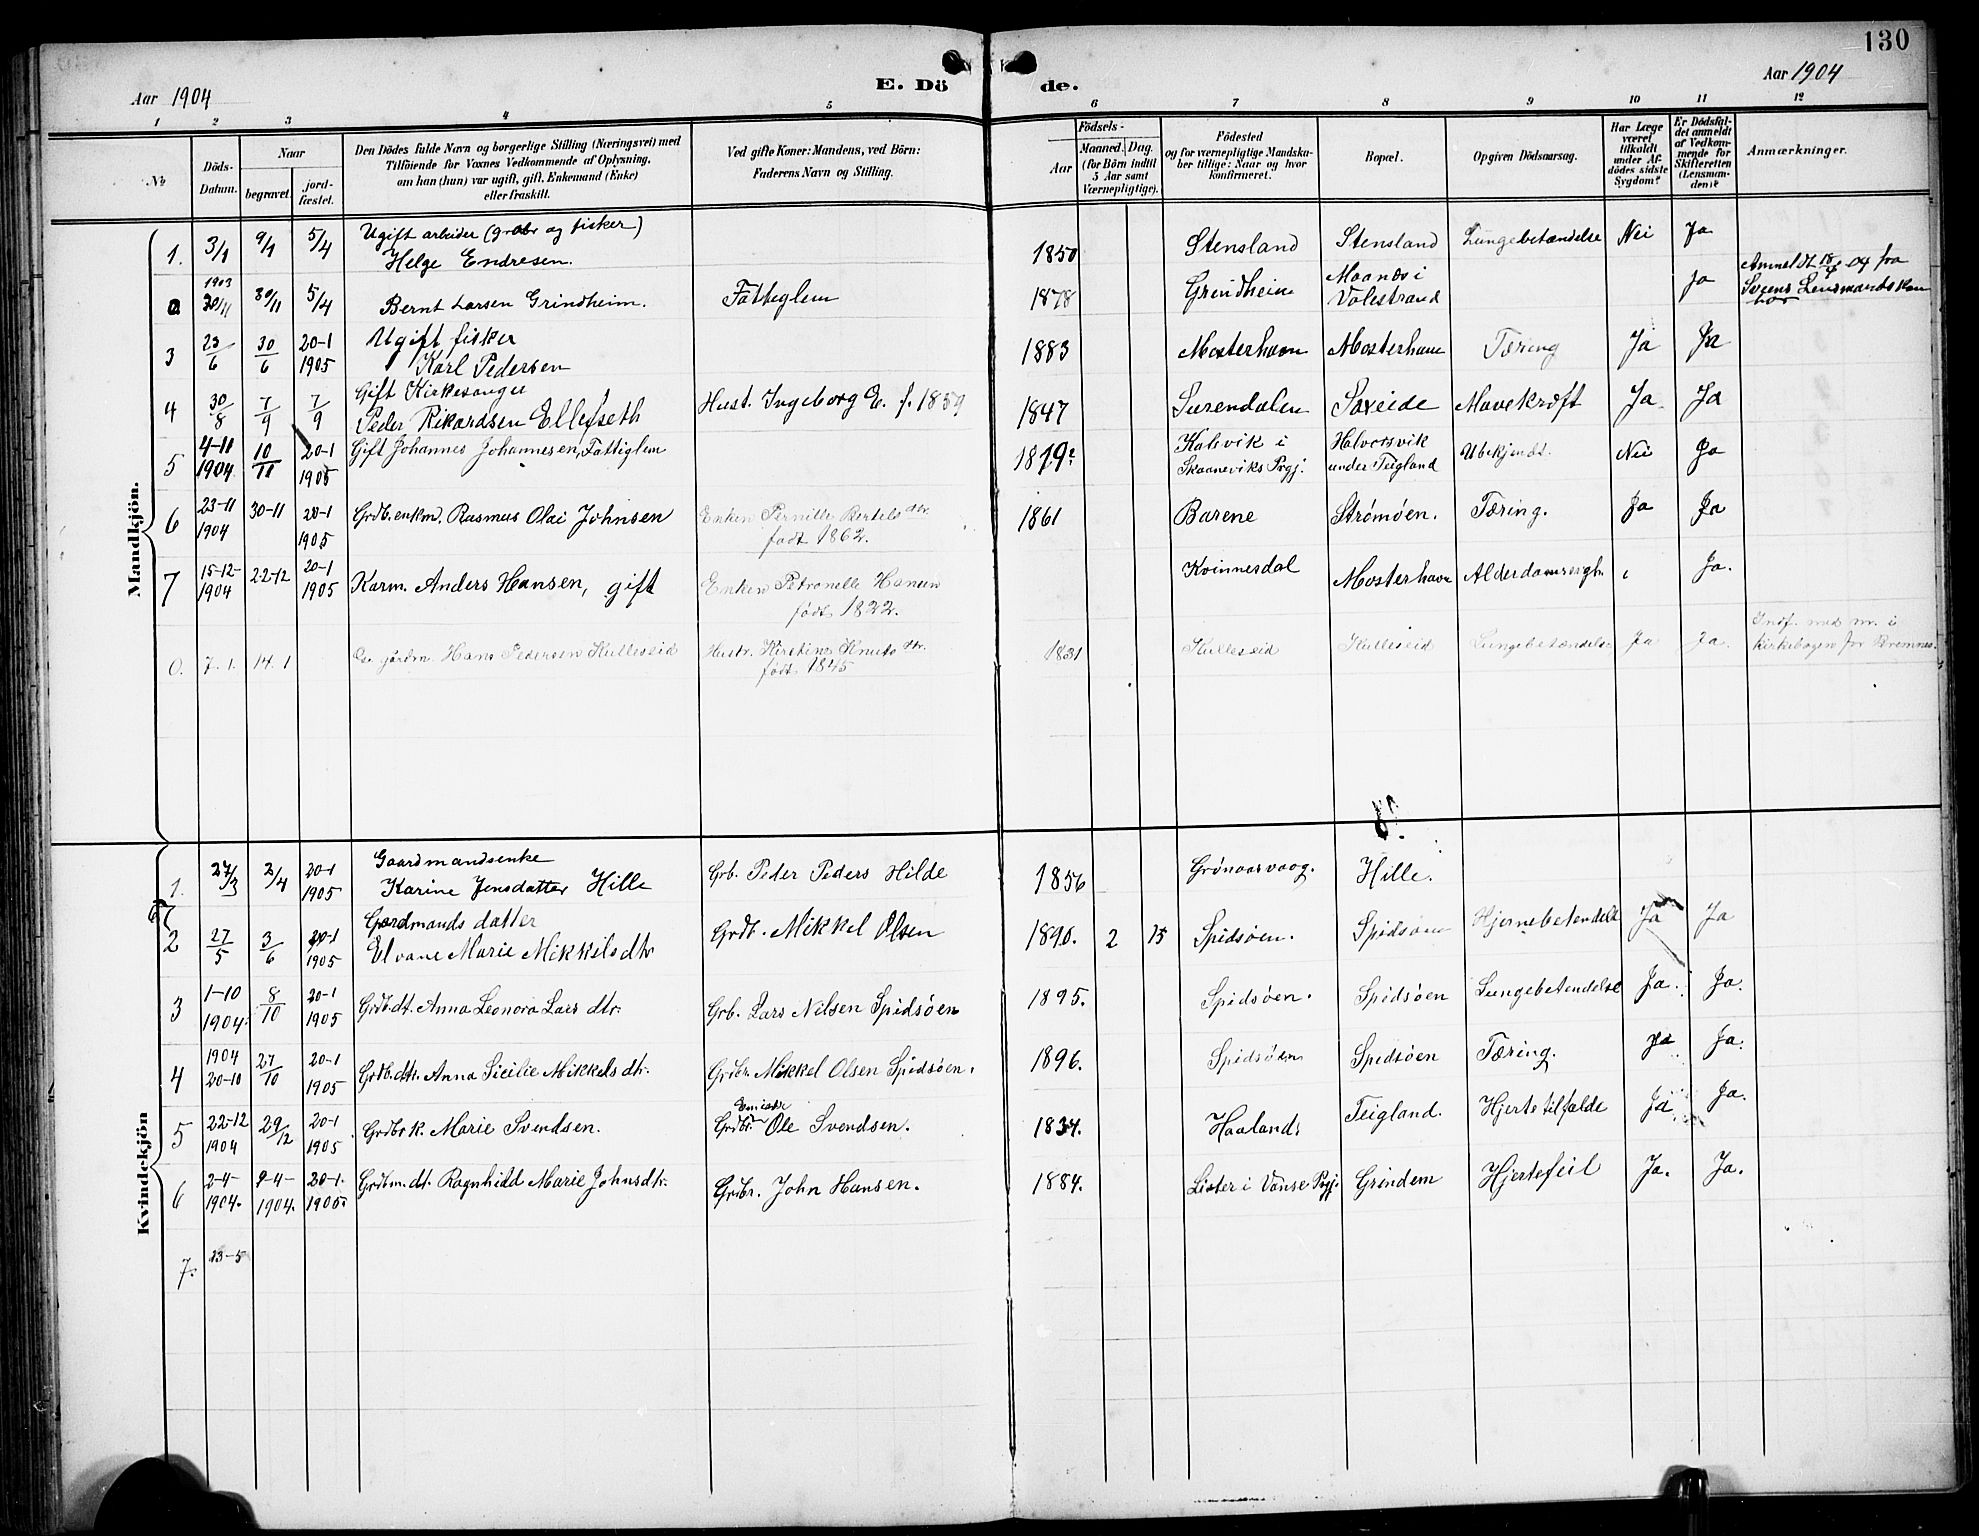 130
Aar 1904
E. Dö de.
Aar 1904
1 2 3 4 5 6 7 8 9 10 11 12
No
Döds-Datum.
Naar
begravet.
jord-fæstet.
Den Dödes fulde Navn og borgerlige Stilling (Næringsvei) med
Tilföiende for Voxnes Vedkommende af Oplysning,
om han (hun) var ugift, gift, Enkemand (Enke)
eller fraskilt.
Ved gifte Koner: Mandens, ved Börn:
Faderens Navn og Stilling.
Födsels-
Aar
Maaned. Dag.
(for Börn indtil
5 Aar samt
Værnepligtige).
Födested
og for værnepligtige Mandska-
ber tillige: Naar og hvor
konfirmeret.
Bopæl.
Opgiven Dödsaarsag.
Har Læge
været
tilkaldt
under Af-
dödes sidste
Sygdom?
Er Dödsfal-
det anmeldt
af Vedkom-
mende for
Skifteretten
(Lensman-
den)?
Anmærkninger.
Mandkjön.
1. 3/1 9/1 5/4 Ugift arbeider (grdbr og fisker)
Helge Endresen. 1850 Stensland Stensland Lungebetændelse Nei Ja
1903
30/11 30/11 5/4 Bernt Larsen Grindheim. Fatteglem 1878 Grindheim Maanæs i
Valestrand Ja Anmeldt 18/4 04 fra
Sveens Lensmandskon
tor
3 23/6 30/6 20-1
1905 Ugift fisker
Karl Pedersen 1883 Mosterhavn Mosterhavn Tæring Ja Ja
4 30/8 7/9 7/9 Gift Kirkesanger
Peder Rikardsen Ellefseth Hust. Ingeborg E. f. 1859 1847 Surendalen Sæxeide Mavekræft Ja Ja
5 4-11
1904 10/11 20-1
1905 Gift Johannes Johannesen, Fattiglem 1819? Kalevik i
Skaaneviks Prgj. Halvorsvik
under Teigland Ubekjendt. Nei Ja
6 23-11
1904 30-11 20-1
1905 Grdb. enkm. Rasmus Olai Johnsen Enken Pernille Bertels dtr.
født 1862. 1861 Barene Strømøen. Tæring. Ja Ja
7 15-12-
1904 22-12 20-1
1905 Karm. Anders Hansen, gift Enken Petronelle Hansen
født 1822. Kvinnesdal Mosterhavn Ja.
0. 7.1. 14.1 gårdm. Hans Pedersen Kulleseid Hustr. Kirstine Knuts dtr.
født 1845 1831 Kulleseid Kulleseid Lungebetændelse Ja Ja. Indf. med nr. i
kirkebogen for Bremnes.
Kvindekjön
1. 27/3 2/4 20-1
1905 Gaardmandsenke
Karine Jensdatter Hille Grb. Peder Peders Hilde 1856 Grønaasvaag. Hille.
2 27/5 3/6 20-1
1905 Gardmands datter
Elvane Marie Mikkelsdtr Grdb. Mikkel Olsen 1890. 2 15 Spidsøen. Spidsøen Hjernebetendelse Ja Ja
3 1-10
1904. 8/10 20-1
1905 Grdb.dt. Anna Leonora Lars dtr. Grb. Lars Nilsen Spidsøen 1895. Spidsøen. Spidsøen Lungebetendelse Ja. Ja.
4 1904
20-10 27/10 20-1
1905 Grdb.dtr. Anna Sicilie Mikkelsdtr. Grdbr. Mikkel Olsen Spidsøen. 1896. Spidsøen Spidsøen Tæring. Ja Ja.
5 22-12
1904 29/12 20-1
1905 Grdbrk. Marie Svendsen. Grdbr. Ole Svendsen. 1834. Haaland. Teigland. Hjertetilfælde Ja Ja.
6 2-4-
1904. 9-4-
1904. 20-1.
1905. Grdbm. dt. Ragnhild Marie Johnsdtr. Grdbr. John Hansen. 1884. Lister i Vanse Prgj. Grindem Hjertefeil Ja. Ja.
7. 23-5